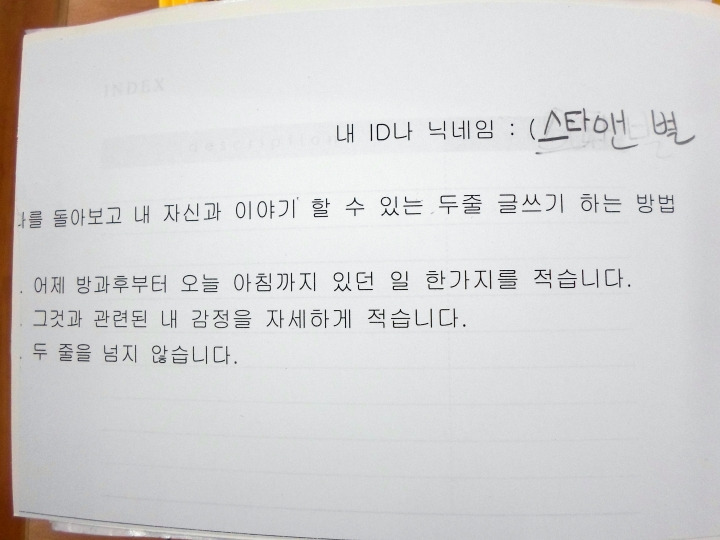 내 ID나 닉네임 : (스타앤 별
나를 돌아보고 내 자신과 이야기 할 수 있는 두줄 글쓰기 하는 방법
. 어제 방과후부터 오늘 아침까지 있던 일 한가지를 적습니다.
. 그것과 관련된 내 감정을 자세하게 적습니다.
. 두 줄을 넘지 않습니다.